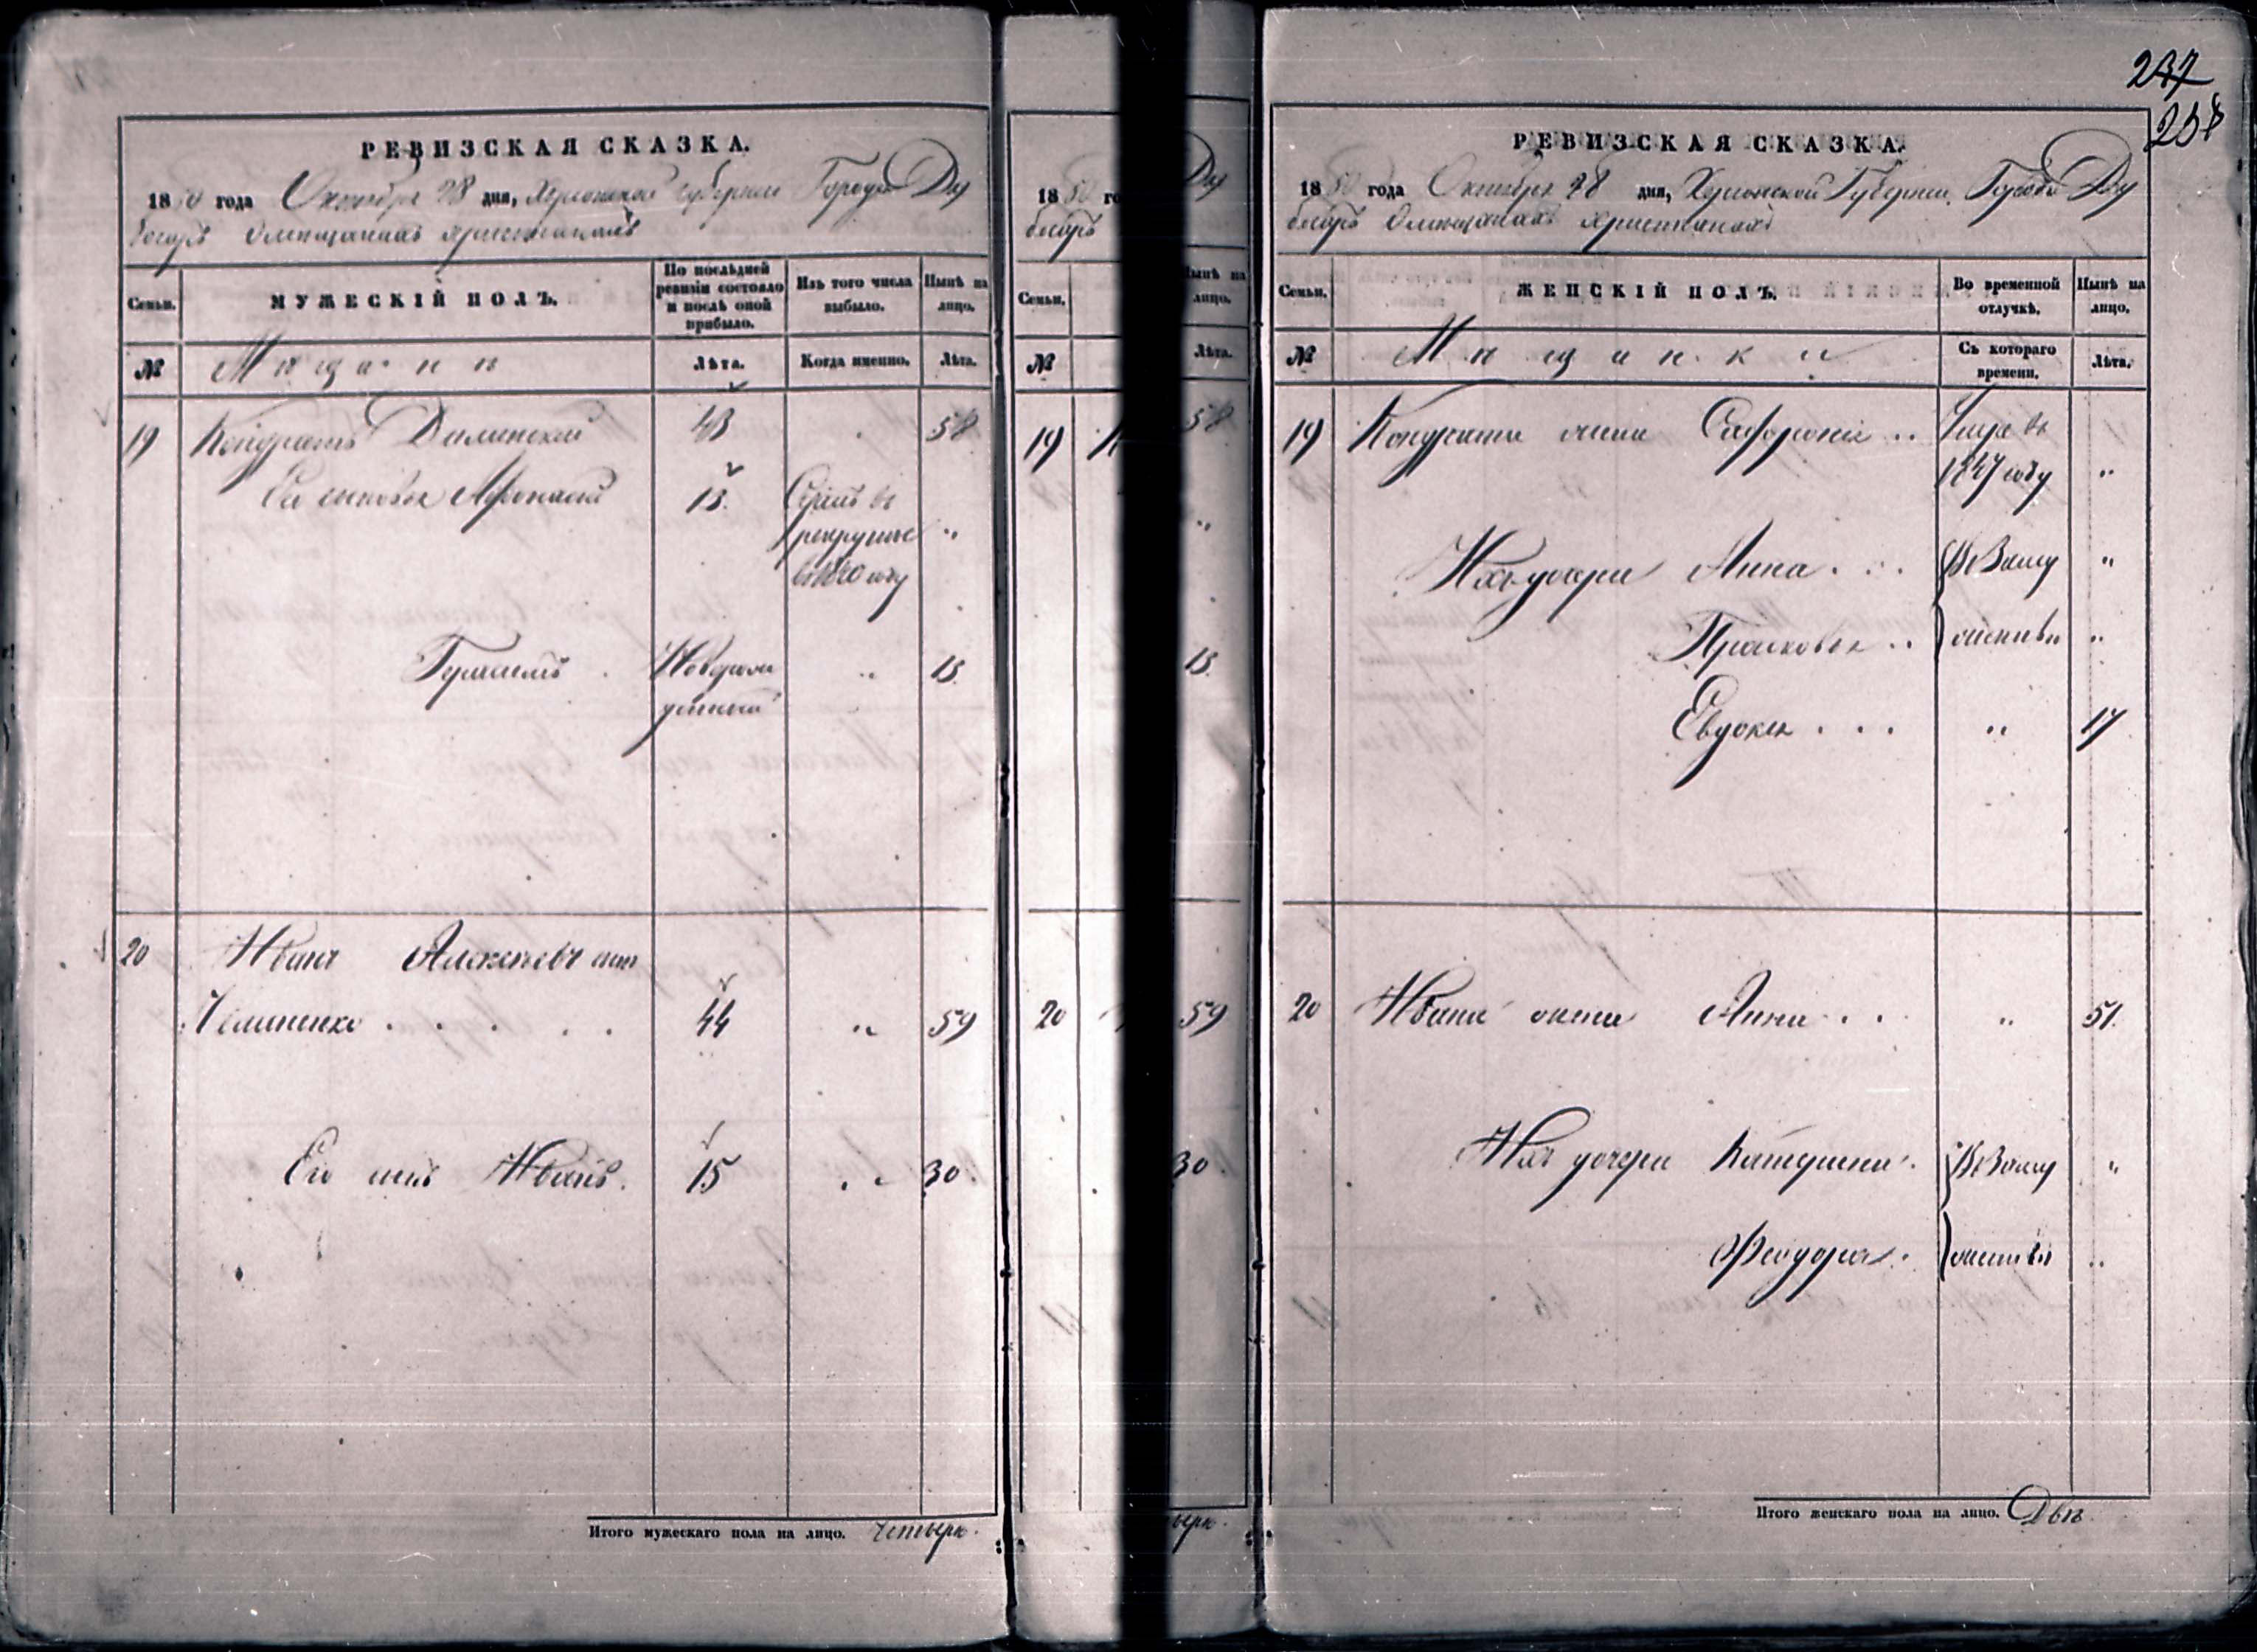 237
РЕВИЗСКАЯ СКАЗКА.
1850 года Октября 28 дня, Херсонской Губернии Города Ду
босаръ О мещанахъ христианахъ
Семьи.
МУЖЕСКІЙ ПОЛЪ.
По послѣдней ревизіи состояло и послѣ оной прибыло.
Изъ того числа выбыло.
Нынѣ на лицо.
№
Мѣщане
Лѣта.
Когда именно.
Лѣта.
19 Кондратъ 43 58
Его сыновья Афонасий 13. Сданъ въ
рекруты „
Герасимъ . Новорож „ 15.
денный
20 Иванъ Алексеевъ сынъ
44 „ 59
Его сынъ Иванъ. 15 „ 30.
Итого мужескаго пола на лицо. Четыре.
1850 го
босаръ
Семьи.
№
19
20
Ду
Нынѣ на лицо.
Лѣта.
58
„
15.
59
30.
ыре.
РЕВИЗСКАЯ СКАЗКА.
1850 года Октября 28 дня, Херсонской Губернии, Города Ду
босаръ О мещанахъ христианахъ
Семьи.
ЖЕНСКІЙ ПОЛЪ.
Во временной отлучкѣ.
Нынѣ на лицо.
№
Мѣщанки
Съ котораго времени.
Лѣта.
19 Кондрата жена .. Умре въ
1847 году „
Ихъ дочери Анна . . . Въ Заму „
Прасковья .. жестве „
Евдокия . . . „ 17
20 Ивана жена Анна . . . „ 51.
Ихъ дочери Катерина . Въ Заму „
Феодора . жестве „
Итого женскаго пола на лицо. Двѣ.